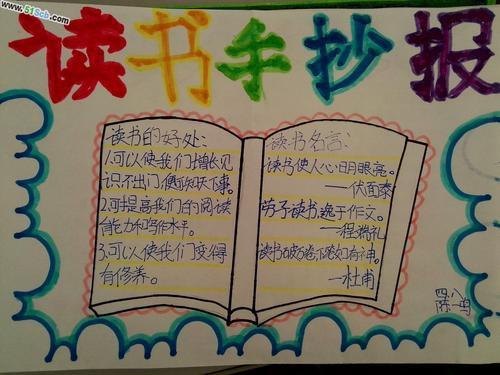 www.51Scb.com
读书手抄报
读书的好处:
1.可以使我们增长见
识,不出门,便可知天下事。
2.可提高我们的阅读
能力和写作水平。
3.可以使我们变得
有修养。
读书名言:
读书使人心明眼亮。
——伏而泰
劳于读书,逸于作文。
——程端礼
读书破万卷,下笔如有神。
——杜甫
四八
陈一鸣